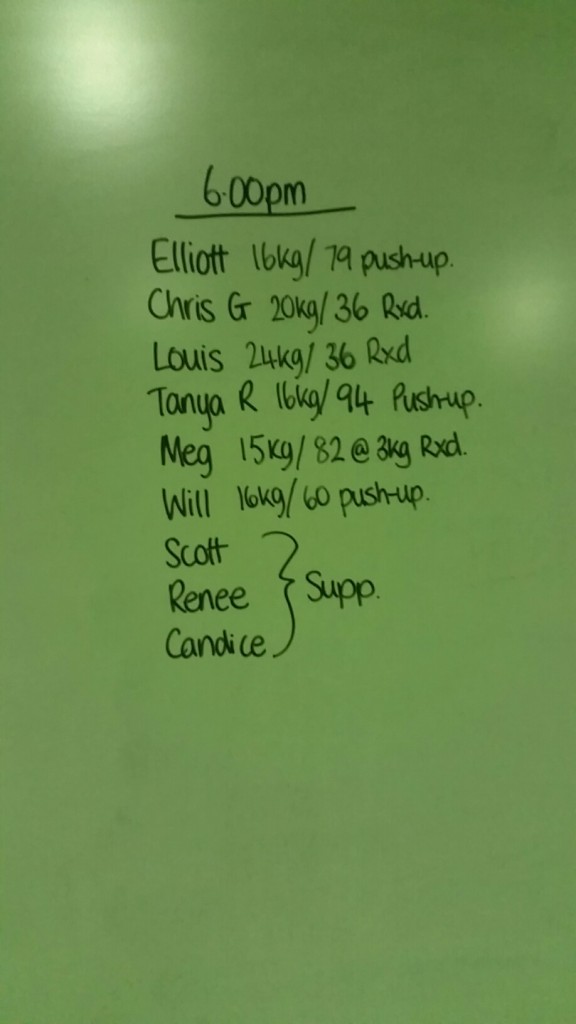 6.00pm
Elliott 16kg/ 79 push-up.
Chris G 20kg/ 36 Rxd.
Louis 24kg/ 36 Rxd
Tanya R 16kg/ 94 Push-up.
Meg 15kg/ 82 @ 3kg Rxd.
Will 16kg/ 60 push-up.
Scott
Renee } Supp.
Candice